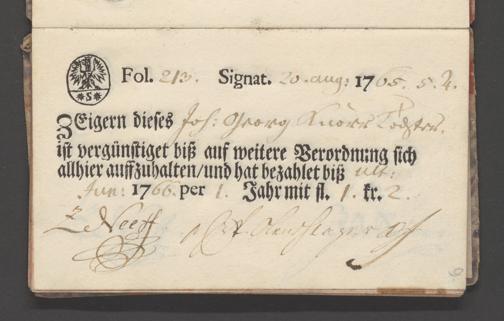 S
Fol. 213. Signat. 20. aug: 1765. S. 4.
Zeigern dieses Joh: Georg Knörr Tochter.
ist vergünstiget biß auf weitere Verordnung sich
allhier auffzuhalten / und hat bezahlet biß ult:
Jun: 1766. per 1. Jahr mit fl. 1. kr. 2.
Z Neeff